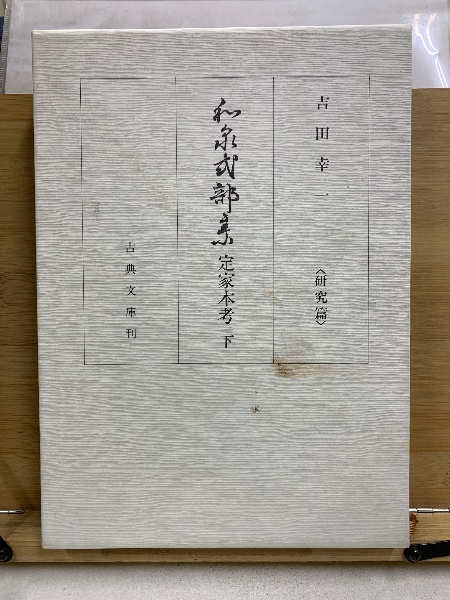 吉田幸一
〈研究篇〉
和泉式部集定家本考 下
古典文庫刊